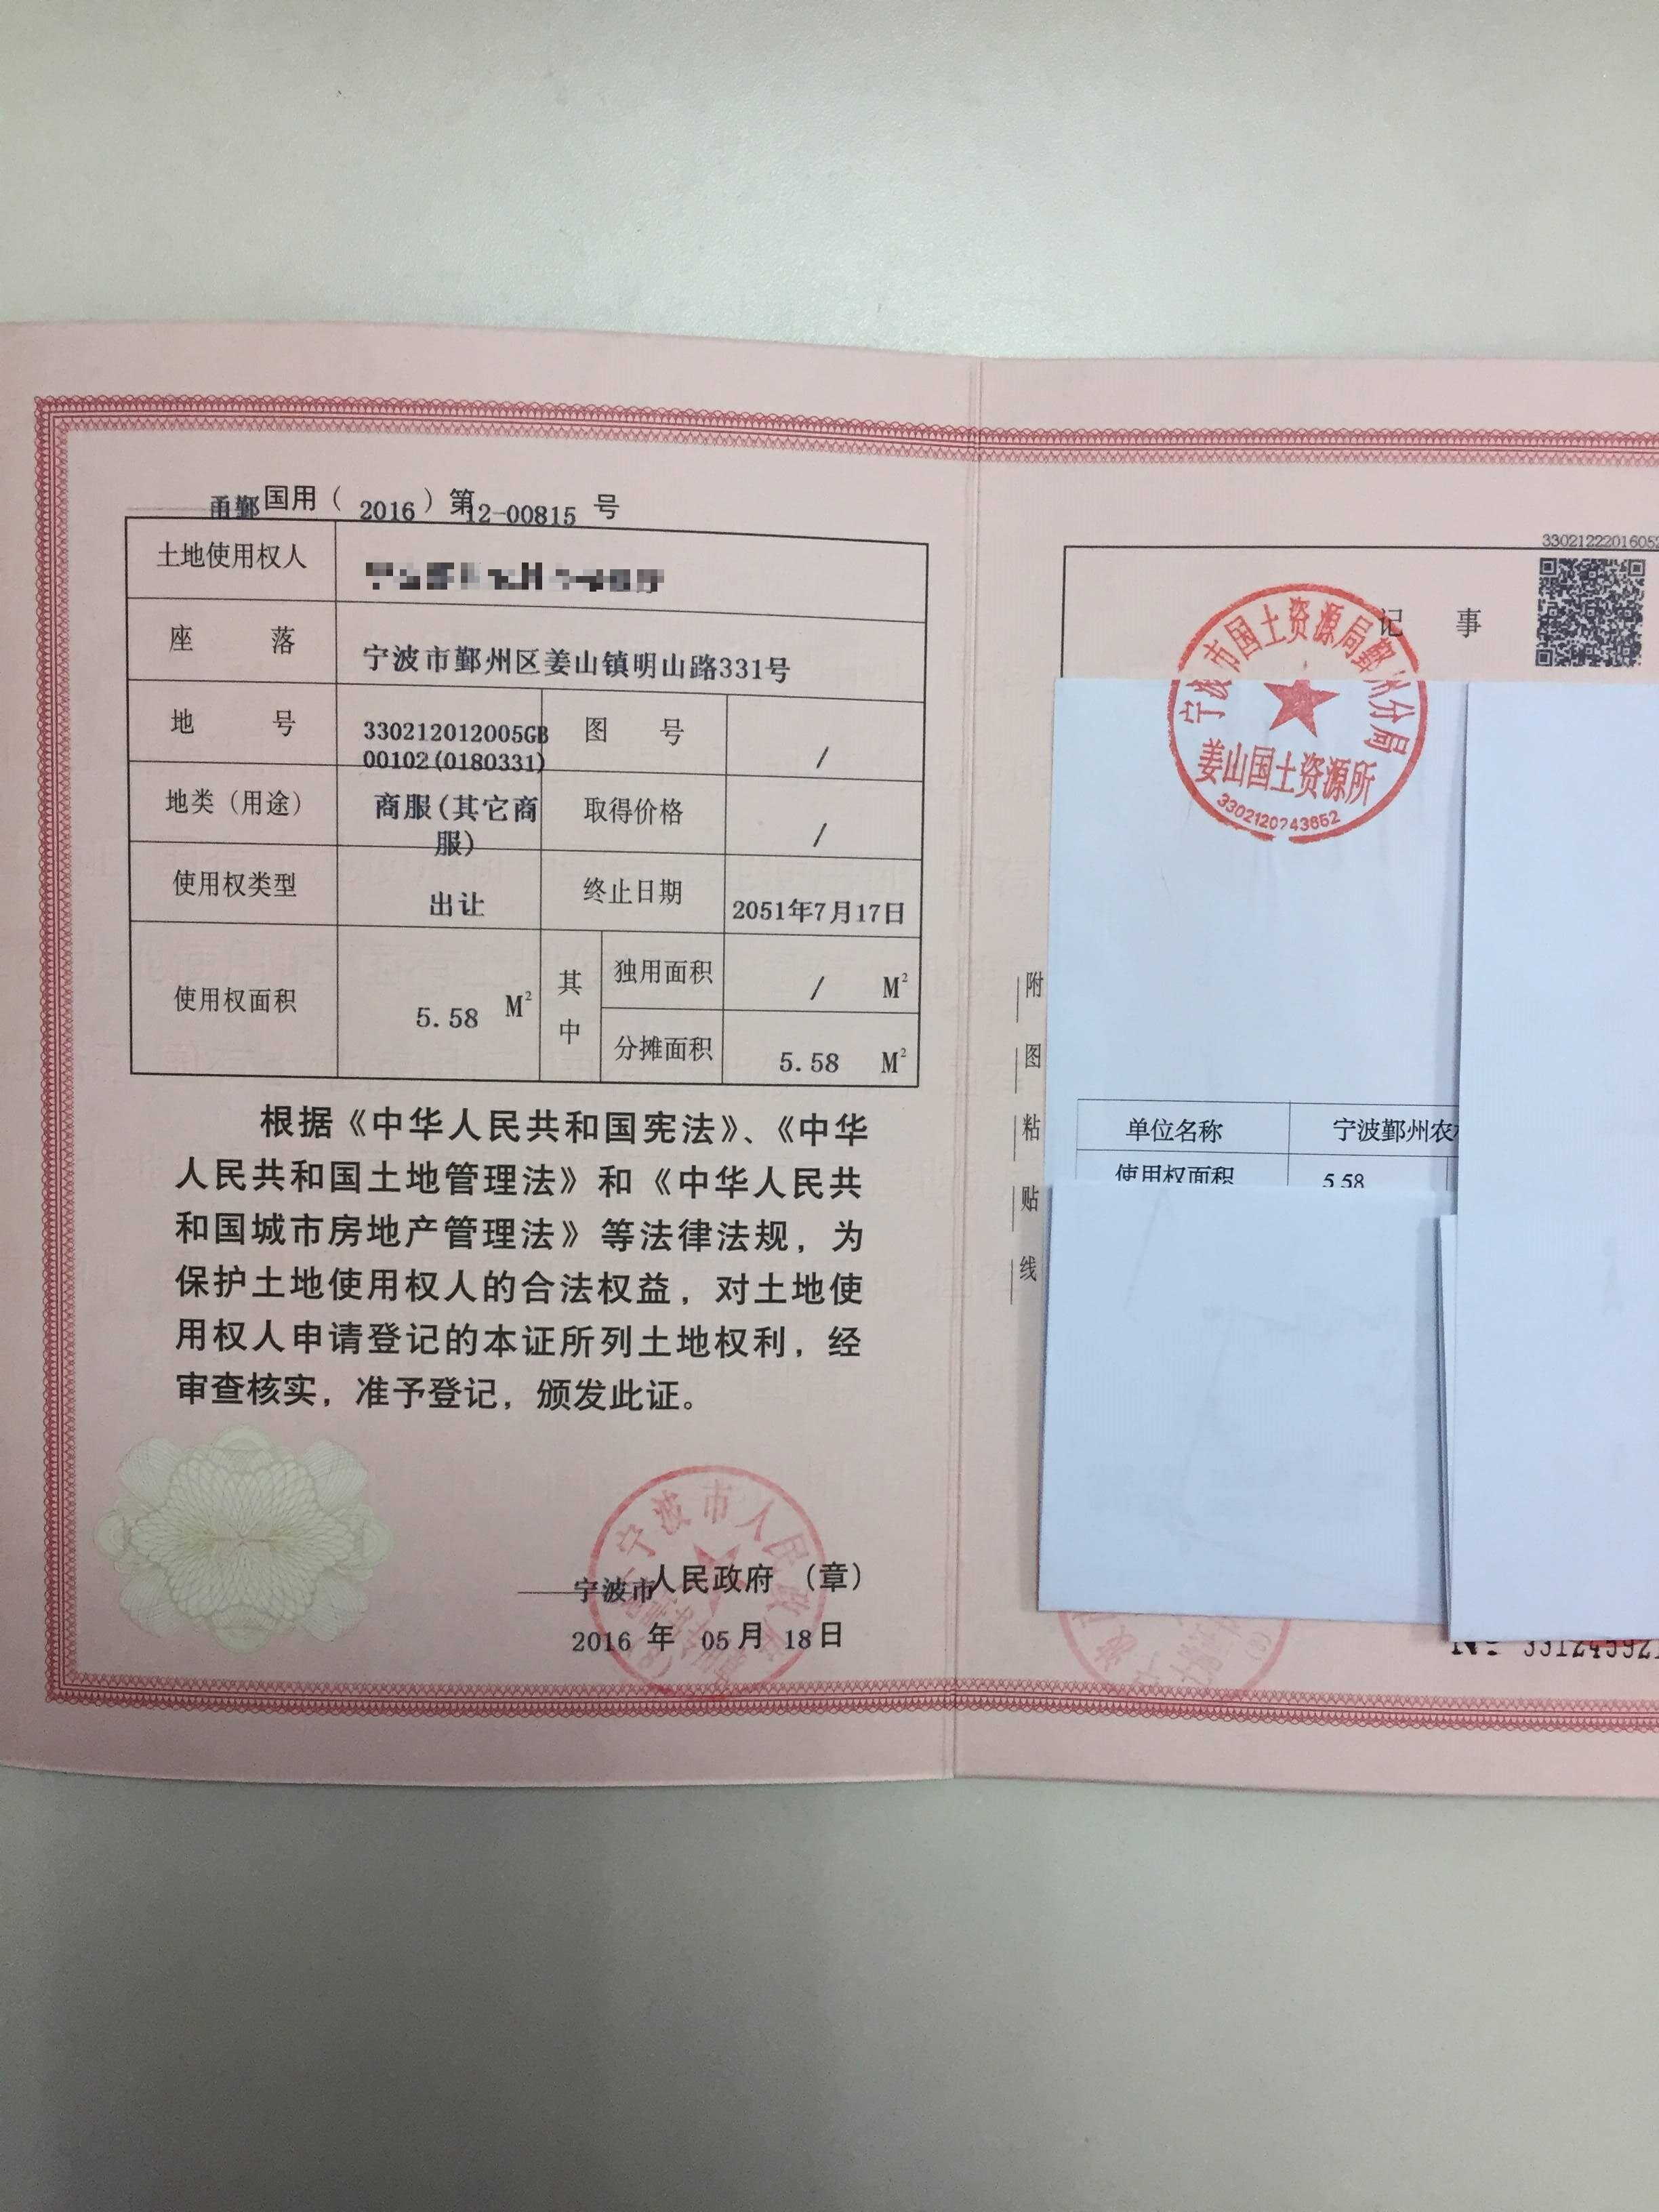 甬鄞国用（2016）第12-00815号
土地使用权人
座落 宁波市鄞州区姜山镇明山路331号
地号 330212012005GB00102(0180331) 图号 /
地类（用途） 商服(其它商服) 取得价格 /
使用权类型 出让 终止日期 2051年7月17日
使用权面积 5.58 M² 其中 独用面积 / M²
分摊面积 5.58 M²
根据《中华人民共和国宪法》、《中华
人民共和国土地管理法》和《中华人民共
和国城市房地产管理法》等法律法规，为
保护土地使用权人的合法权益，对土地使
用权人申请登记的本证所列土地权利，经
审查核实，准予登记，颁发此证。
宁波市人民政府（章）
2016年05月18日
宁波市人民政府
33021222016052
记事
宁波市国土资源局鄞州分局
姜山国土资源所
3302120743652
附图粘贴线
单位名称 宁波鄞州农
使用权面积 5.58